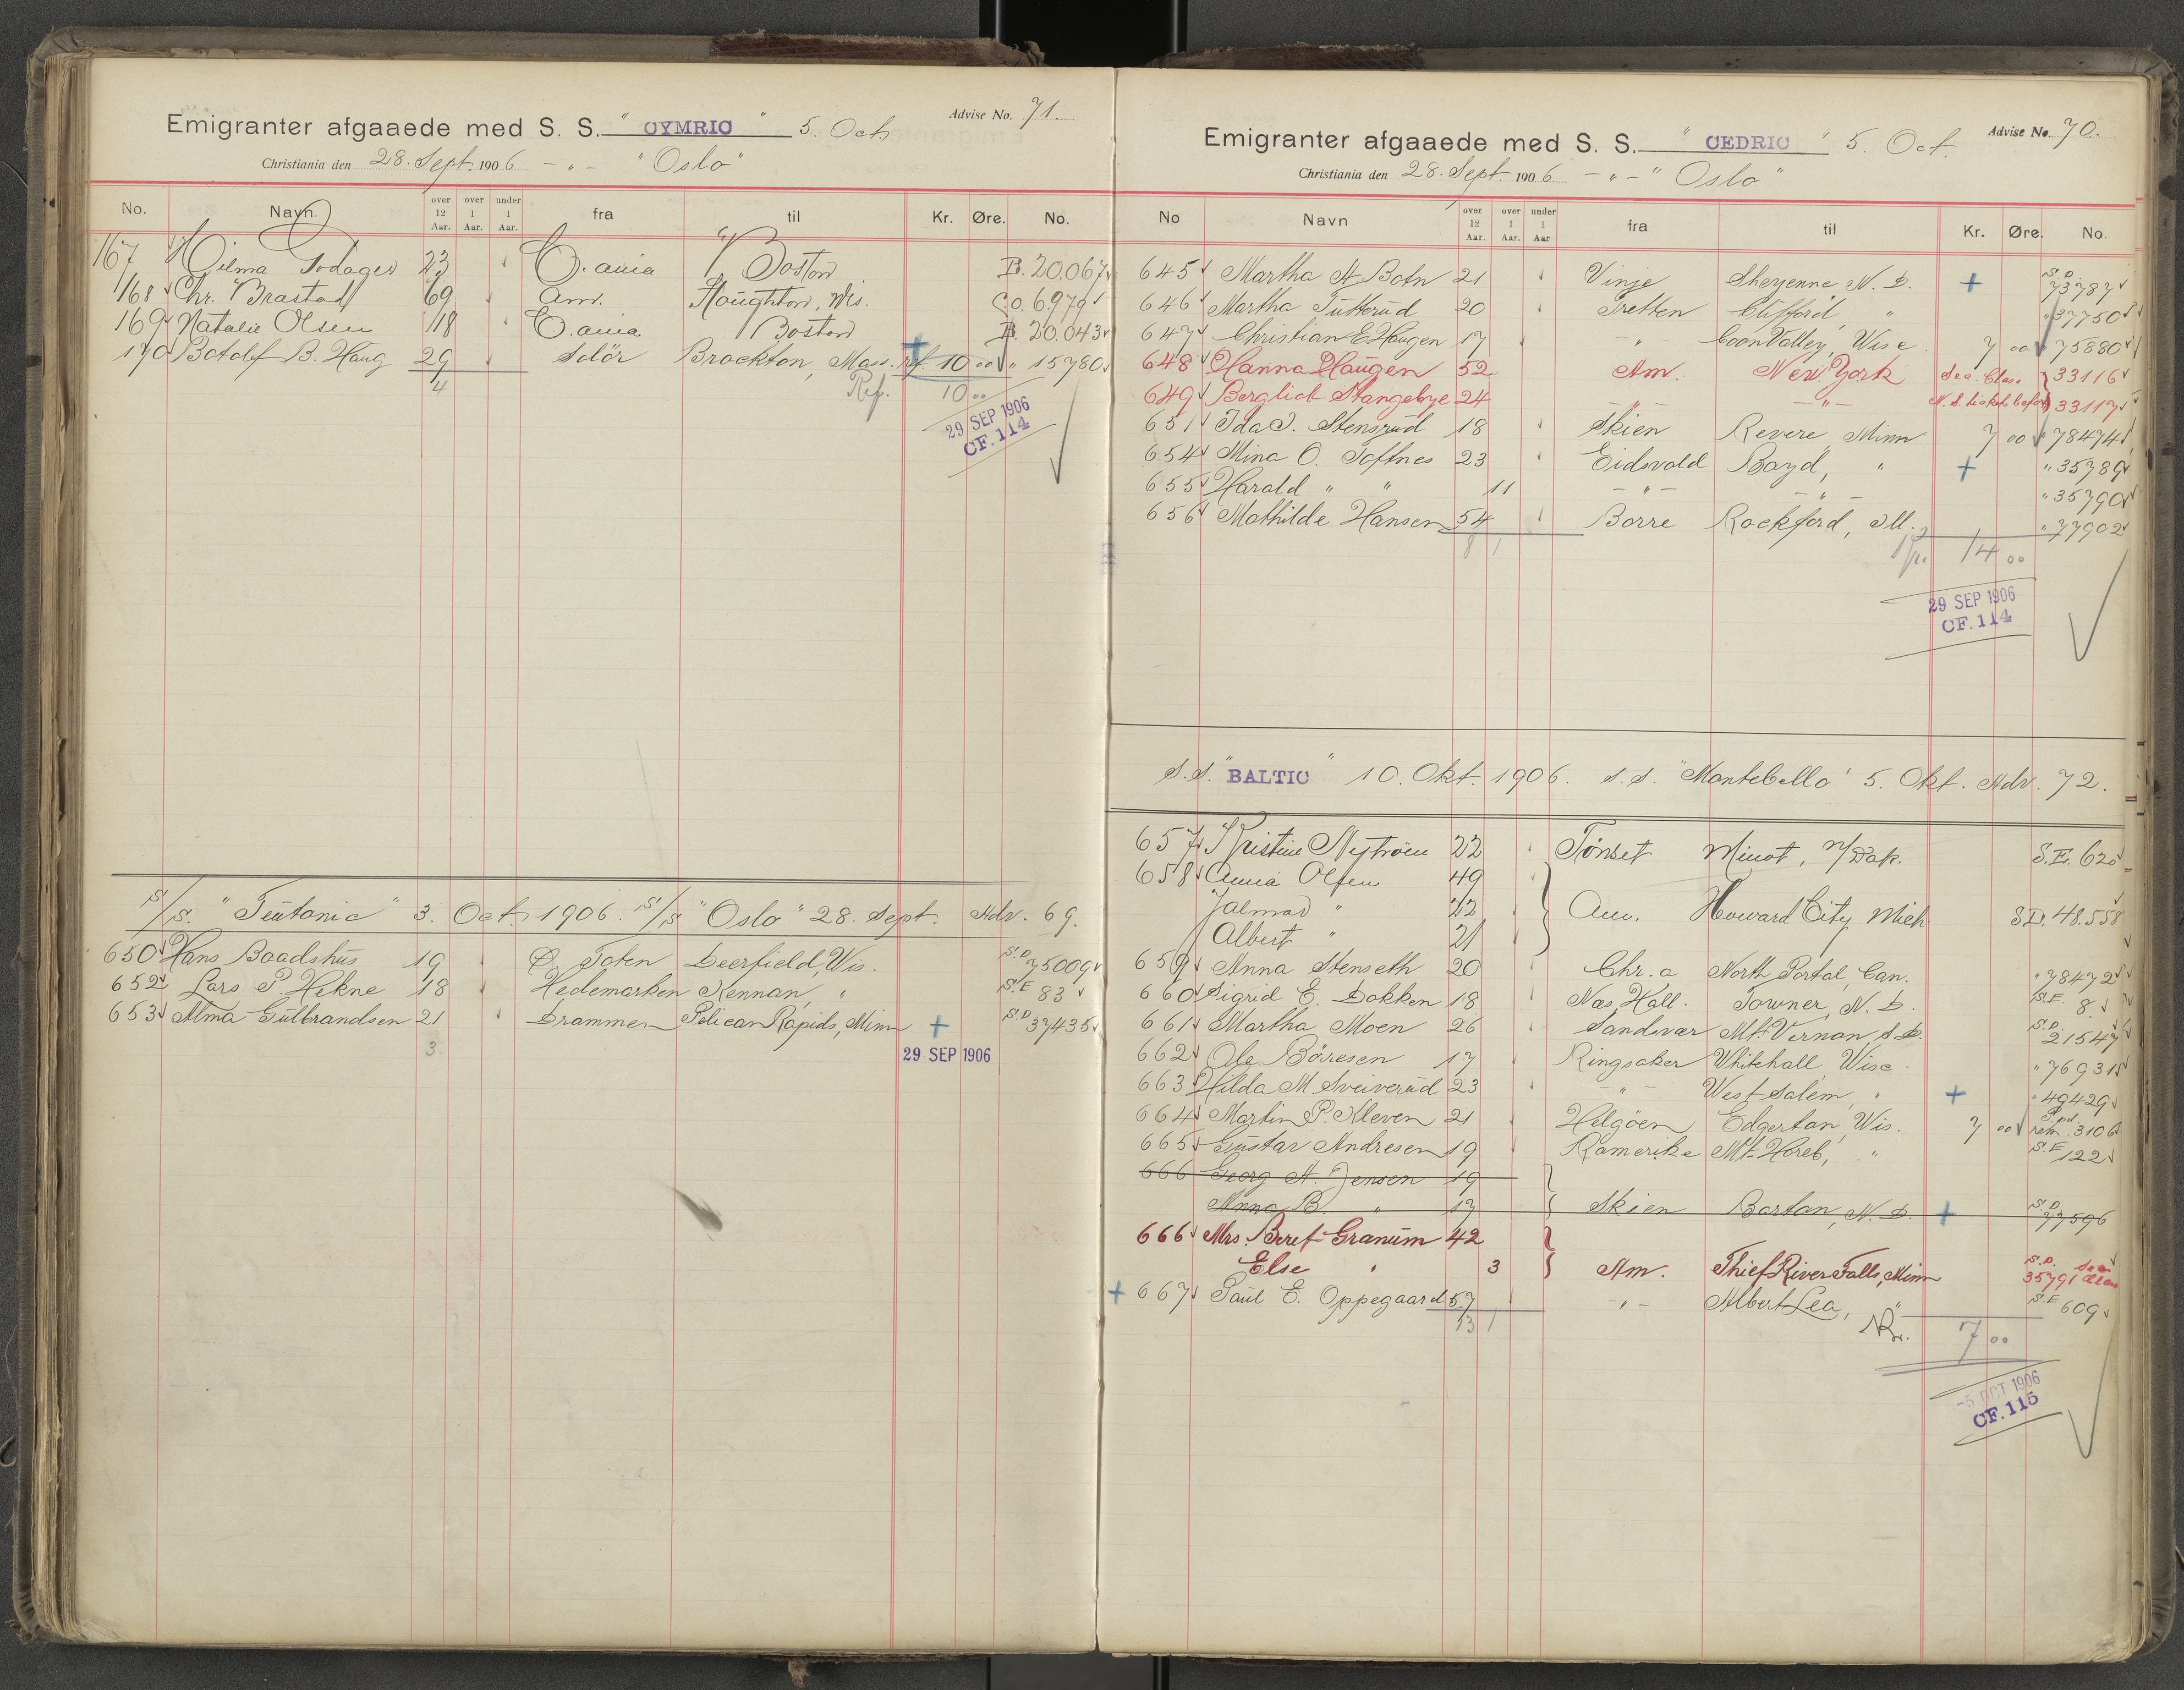 Advise No. 71
Emigranter afgaaede med S. S. " CYMRIC " 5. Oct.
Christiania den 28. Sept. 1906 - " - "Oslo"
No. Navn. over 12 Aar. over 1 Aar. under 1 Aar. fra til Kr. Øre. No.
167 Hilma Sodager 23 C.ania Boston B. 20.067
168 Chr. Brastad 69 Am. Houghton, Wis. C.O. 6979
169 Natalie Olsen 18 C.ania Boston B. 20.043
170 Botolf B. Haug 29 Solör Brockton, Mass. + ref. 10 00 " 15780
4 Ref. 10 00
29 SEP 1906
CF. 114
S/S. "Teutonic" 3. Oct. 1906. S/S "Oslo" 28. Sept. Adv. 69.
650 Hans Baadshus 19 Ø. Toten Deerfield, Wis. S.D. 75009
652 Lars P. Hekne 18 Hedemarken Kennan, " S.E 83
653 Alma Gulbrandsen 21 Drammen Pelican Rapids, Minn + S.D. 37435
3
29 SEP 1906
Advise No. 70.
Emigranter afgaaede med S. S. " CEDRIC " 5. Oct.
Christiania den 28. Sept. 1906 - " - "Oslo"
No Navn over 12 Aar. over 1 Aar. under 1 Aar fra til Kr. Øre. No.
645 Martha A. Botn 21 Vinje Sheyenne N. D. + S.D. 73787
646 Martha Tutterud 20 Tretten Clifford " " 37750
647 Christian E Haugen 17 - " - Coon Valley, Wisc 7 00 " 75880
648 Hanna Haugen 52 Am. New York Sec. Class 33116
649 Bergliot Stangebye 24 - " - - " - 33117
651 Ida J. Stensrud 18 Skien Revere, Minn 7 00 " 78474
654 Mina O. Toftnes 23 Eidsvold Boyd, " + " 35789
655 Harald " " 11 - " - - " - " 35790
656 Mathilde Hansen 54 Borre Rockford, Ill. " 77902
8 1 14 00
29 SEP 1906
CF. 114
S.S. "BALTIC" 10. Okt. 1906. S.S. "Montebello" 5. Okt. Adv. 72.
657 Kristine Nytrøen 22 Tønset Minot, N/Dak. S.E. 620
658 Anna Olsen 49
Jalmar " 22 Am. Howard City Mich S.D. 48.558
Albert " 21
659 Anna Stenseth 20 Chr.a North Portal, Can. " 78472
660 Sigrid E. Dokken 18 Næs, Hall. Towner, N. D. S.E. 8.
661 Martha Moen 26 Sandsvær Mt. Vernon, S.D. S.D. 21547
662 Ole Böresen 17 Ringsaker Whitehall, Wisc. " 76931
663 Hilda M. Sveiverud 23 - " - West Salem, " + " 49429
664 Martin P. Kleven 21 Helgöen Edgerton, Wis. 7 00 3106
665 Gustav Andresen 19 Romerike Mt. Horeb, " S.E 122
666 Georg A. Jensen 19
Anna B. " 17 Skien Barton, N. D. + S.D. 77596
666 Mrs. Beret Granum 42
Else " 3 Am. Thief River Falls, Minn S.D. 35791
+ 667 Paul E. Oppegaard 57 - " - Albert Lea, " S.E 609
13 1 7 00
-5 OCT 1906
CF. 115